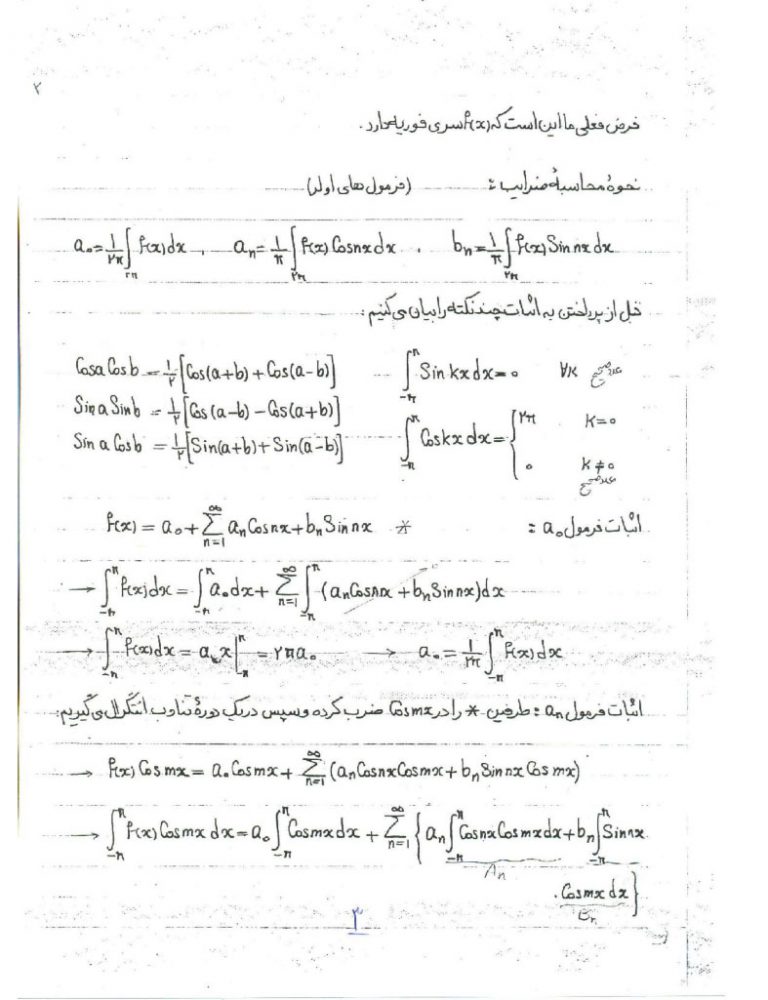 ۲
فرض فعلی ما این است که f(x) سری فوریه دارد.
نحوهٔ محاسبهٔ ضرایب: (فرمول های اولر)
a₀ = ۱/۲π ∫_۲π f(x)dx , aₙ = ۱/π ∫_۲π f(x) Cosnx dx , bₙ = ۱/π ∫_۲π f(x) Sin nx dx
قبل از پرداختن به اثبات چند نکته را بیان می کنیم:
Cosa Cosb = ۱/۲ [Cos(a+b) + Cos(a-b)] ∫_{-π}^{π} Sin kx dx = 0 ∀K عدد صحیح
Sin a Sinb = ۱/۲ [Cos(a-b) - Cos(a+b)]
Sin a Cosb = ۱/۲ [Sin(a+b) + Sin(a-b)] ∫_{-π}^{π} Coskx dx = { ۲π K=0
0 K≠0
عدد صحیح
اثبات فرمول a₀: f(x) = a₀ + Σ_{n=1}^{∞} aₙ Cosnx + bₙ Sin nx *
→ ∫_{-π}^{π} f(x)dx = ∫_{-π}^{π} a₀ dx + Σ_{n=1}^{∞} ∫_{-π}^{π} (aₙ Cosnx + bₙ Sinnx)dx
→ ∫_{-π}^{π} f(x)dx = a₀ x |_{-π}^{π} = ۲πa₀ → a₀ = ۱/۲π ∫_{-π}^{π} f(x)dx
اثبات فرمول aₙ: طرفین * را در Cosmx ضرب کرده و سپس در یک دورهٔ تناوب انتگرال می گیریم:
→ f(x) Cosmx = a₀ Cosmx + Σ_{n=1}^{∞} (aₙ Cosnx Cosmx + bₙ Sin nx Cos mx)
→ ∫_{-π}^{π} f(x) Cosmx dx = a₀ ∫_{-π}^{π} Cosmx dx + Σ_{n=1}^{∞} { aₙ ∫_{-π}^{π} Cosnx Cosmx dx + bₙ ∫_{-π}^{π} Sinnx
Aₙ
. Cosmx dx }
Bₙ
۳